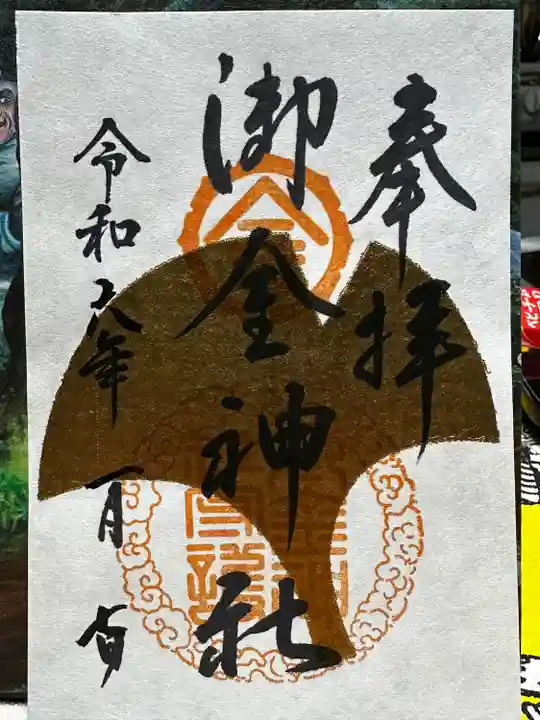 奉拝
御金神社
令和六年一月吉日